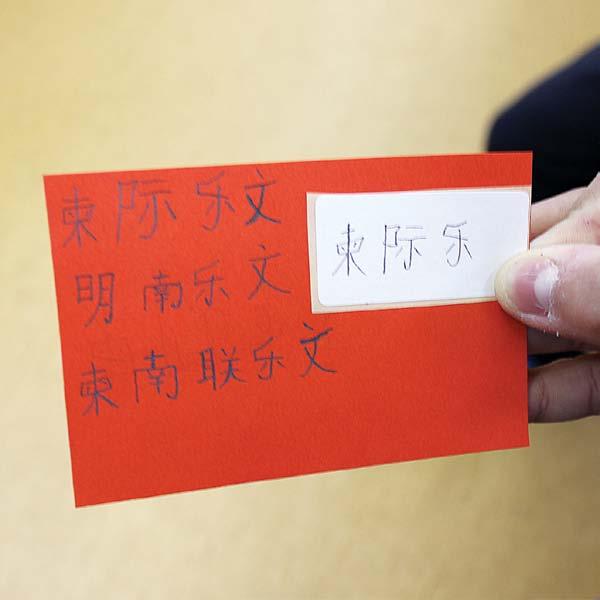 柬际乐文
柬际乐
明南乐文
柬南联乐文